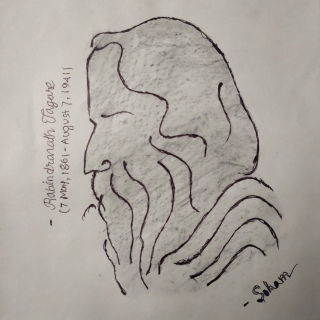 - Rabindranath Tagore
(7 May, 1861 - August 7, 1941)
- Soham